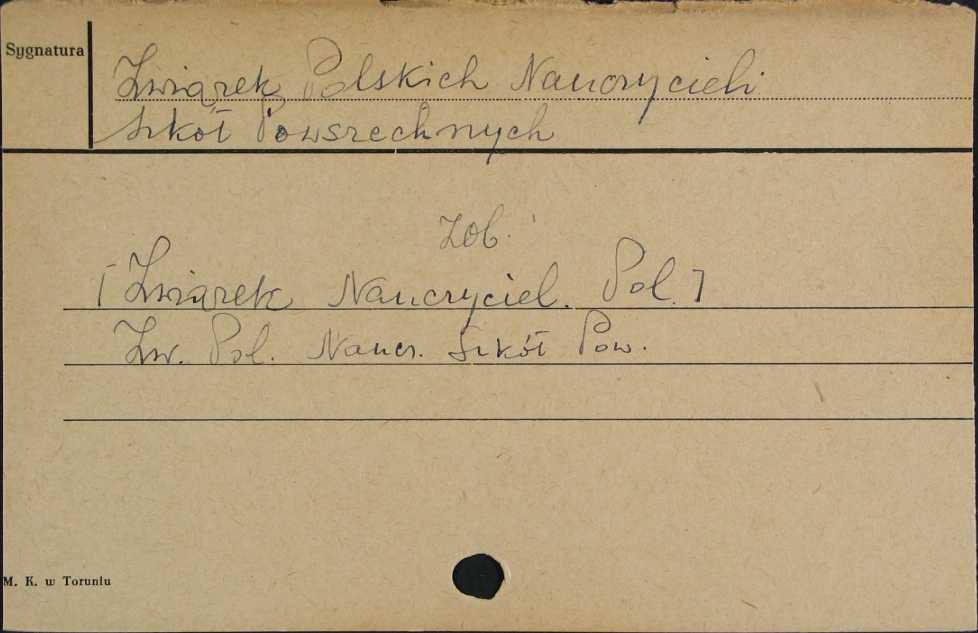 Sygnatura
Związek Polskich Nauczycieli
Szkół Powszechnych
zob.
[Związek Nauczyciel. Pol.]
Zw. Pol. Naucz. Szkół Pow.
M. K. w Toruniu